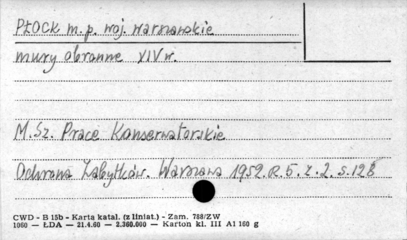 PŁOCK m.p. woj. warszawskie
mury obronne XIV w.
M.Sz. Prace Konserwatorskie
Ochrona Zabytków. Warszawa 1952.R.5.z.2.s.128
CWD - B 15b - Karta katal. (z liniat.) - Zam. 788/ZW
1060 — ŁDA — 21.4.60 — 2.360.000 — Karton kl. III A1 160 g